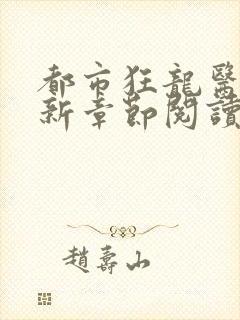 都市狂龍醫
新章節閱讀
趙壽山